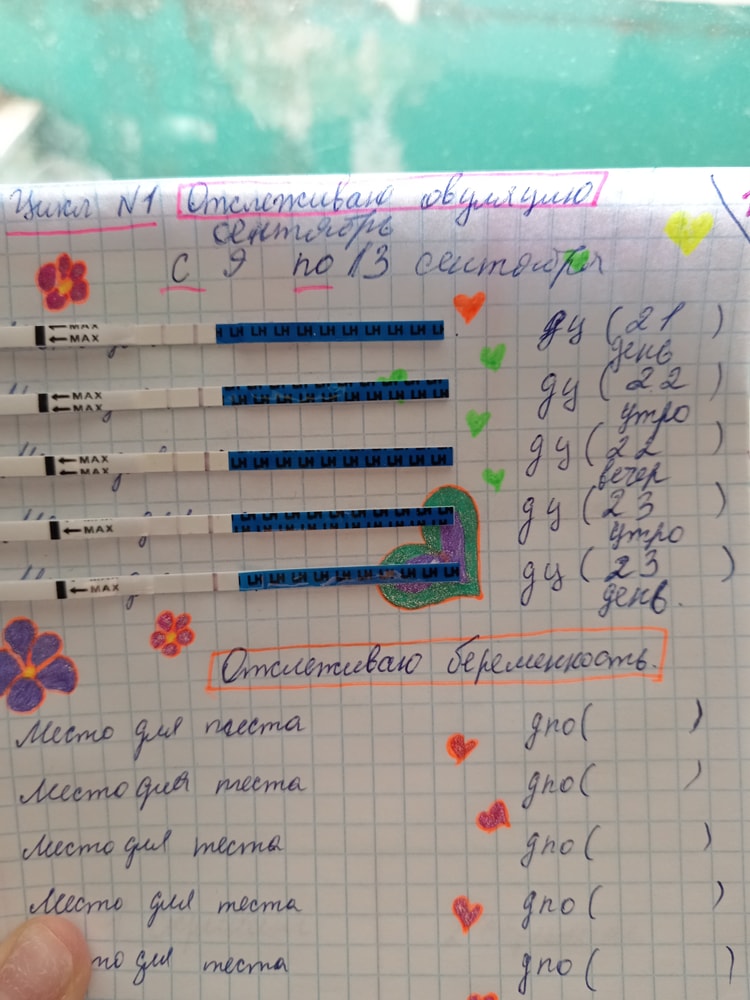 Цикл N1 Отслеживаю овуляцию
сентябрь
с 9 по 13 сентября
MAX
MAX
LH LH LH LH LH LH LH LH LH
дц (21 )
день
MAX
MAX
дц (22 )
утро
MAX
MAX
LH LH LH LH LH LH LH LH LH
дц (22 )
вечер
MAX
дц (23 )
утро
MAX
LH LH LH LH LH LH LH LH LH
дц (23 )
день.
Отслеживаю беременность.
Место для теста дпо( )
Место для теста дпо( )
Место для теста дпо( )
Место для теста дпо( )
для теста дпо( )